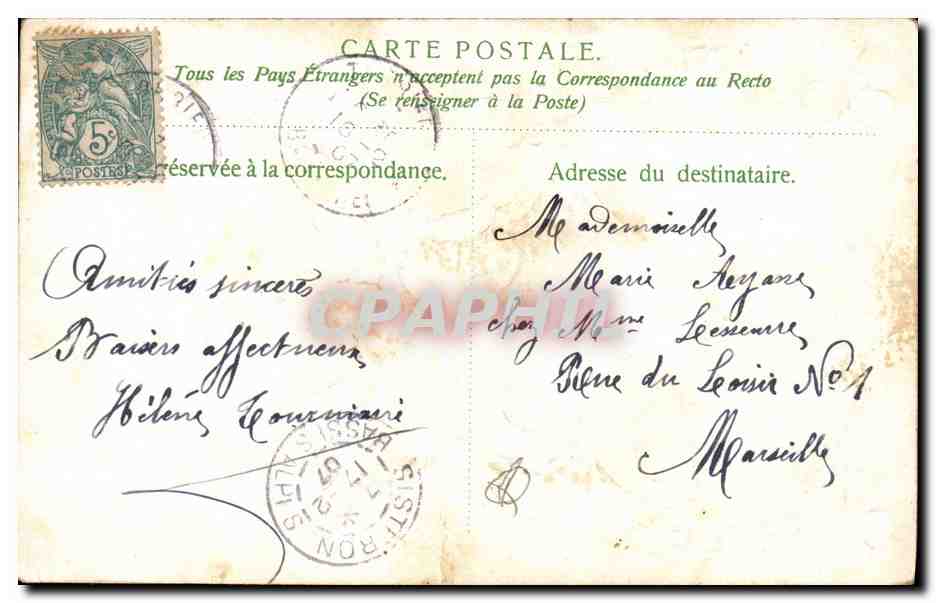 CARTE POSTALE.
Tous les Pays Étrangers n'acceptent pas la Correspondance au Recto
(Se renseigner à la Poste)
5c
POSTES
réservée à la correspondance.
Adresse du destinataire.
Amitiés sincères
Baisers affectueux
Hélène
Mademoiselle
Marie
chez Mme
Rue du Loisir No 1
Marseille
CPAPHIL
SISTERON
BASSES ALPES